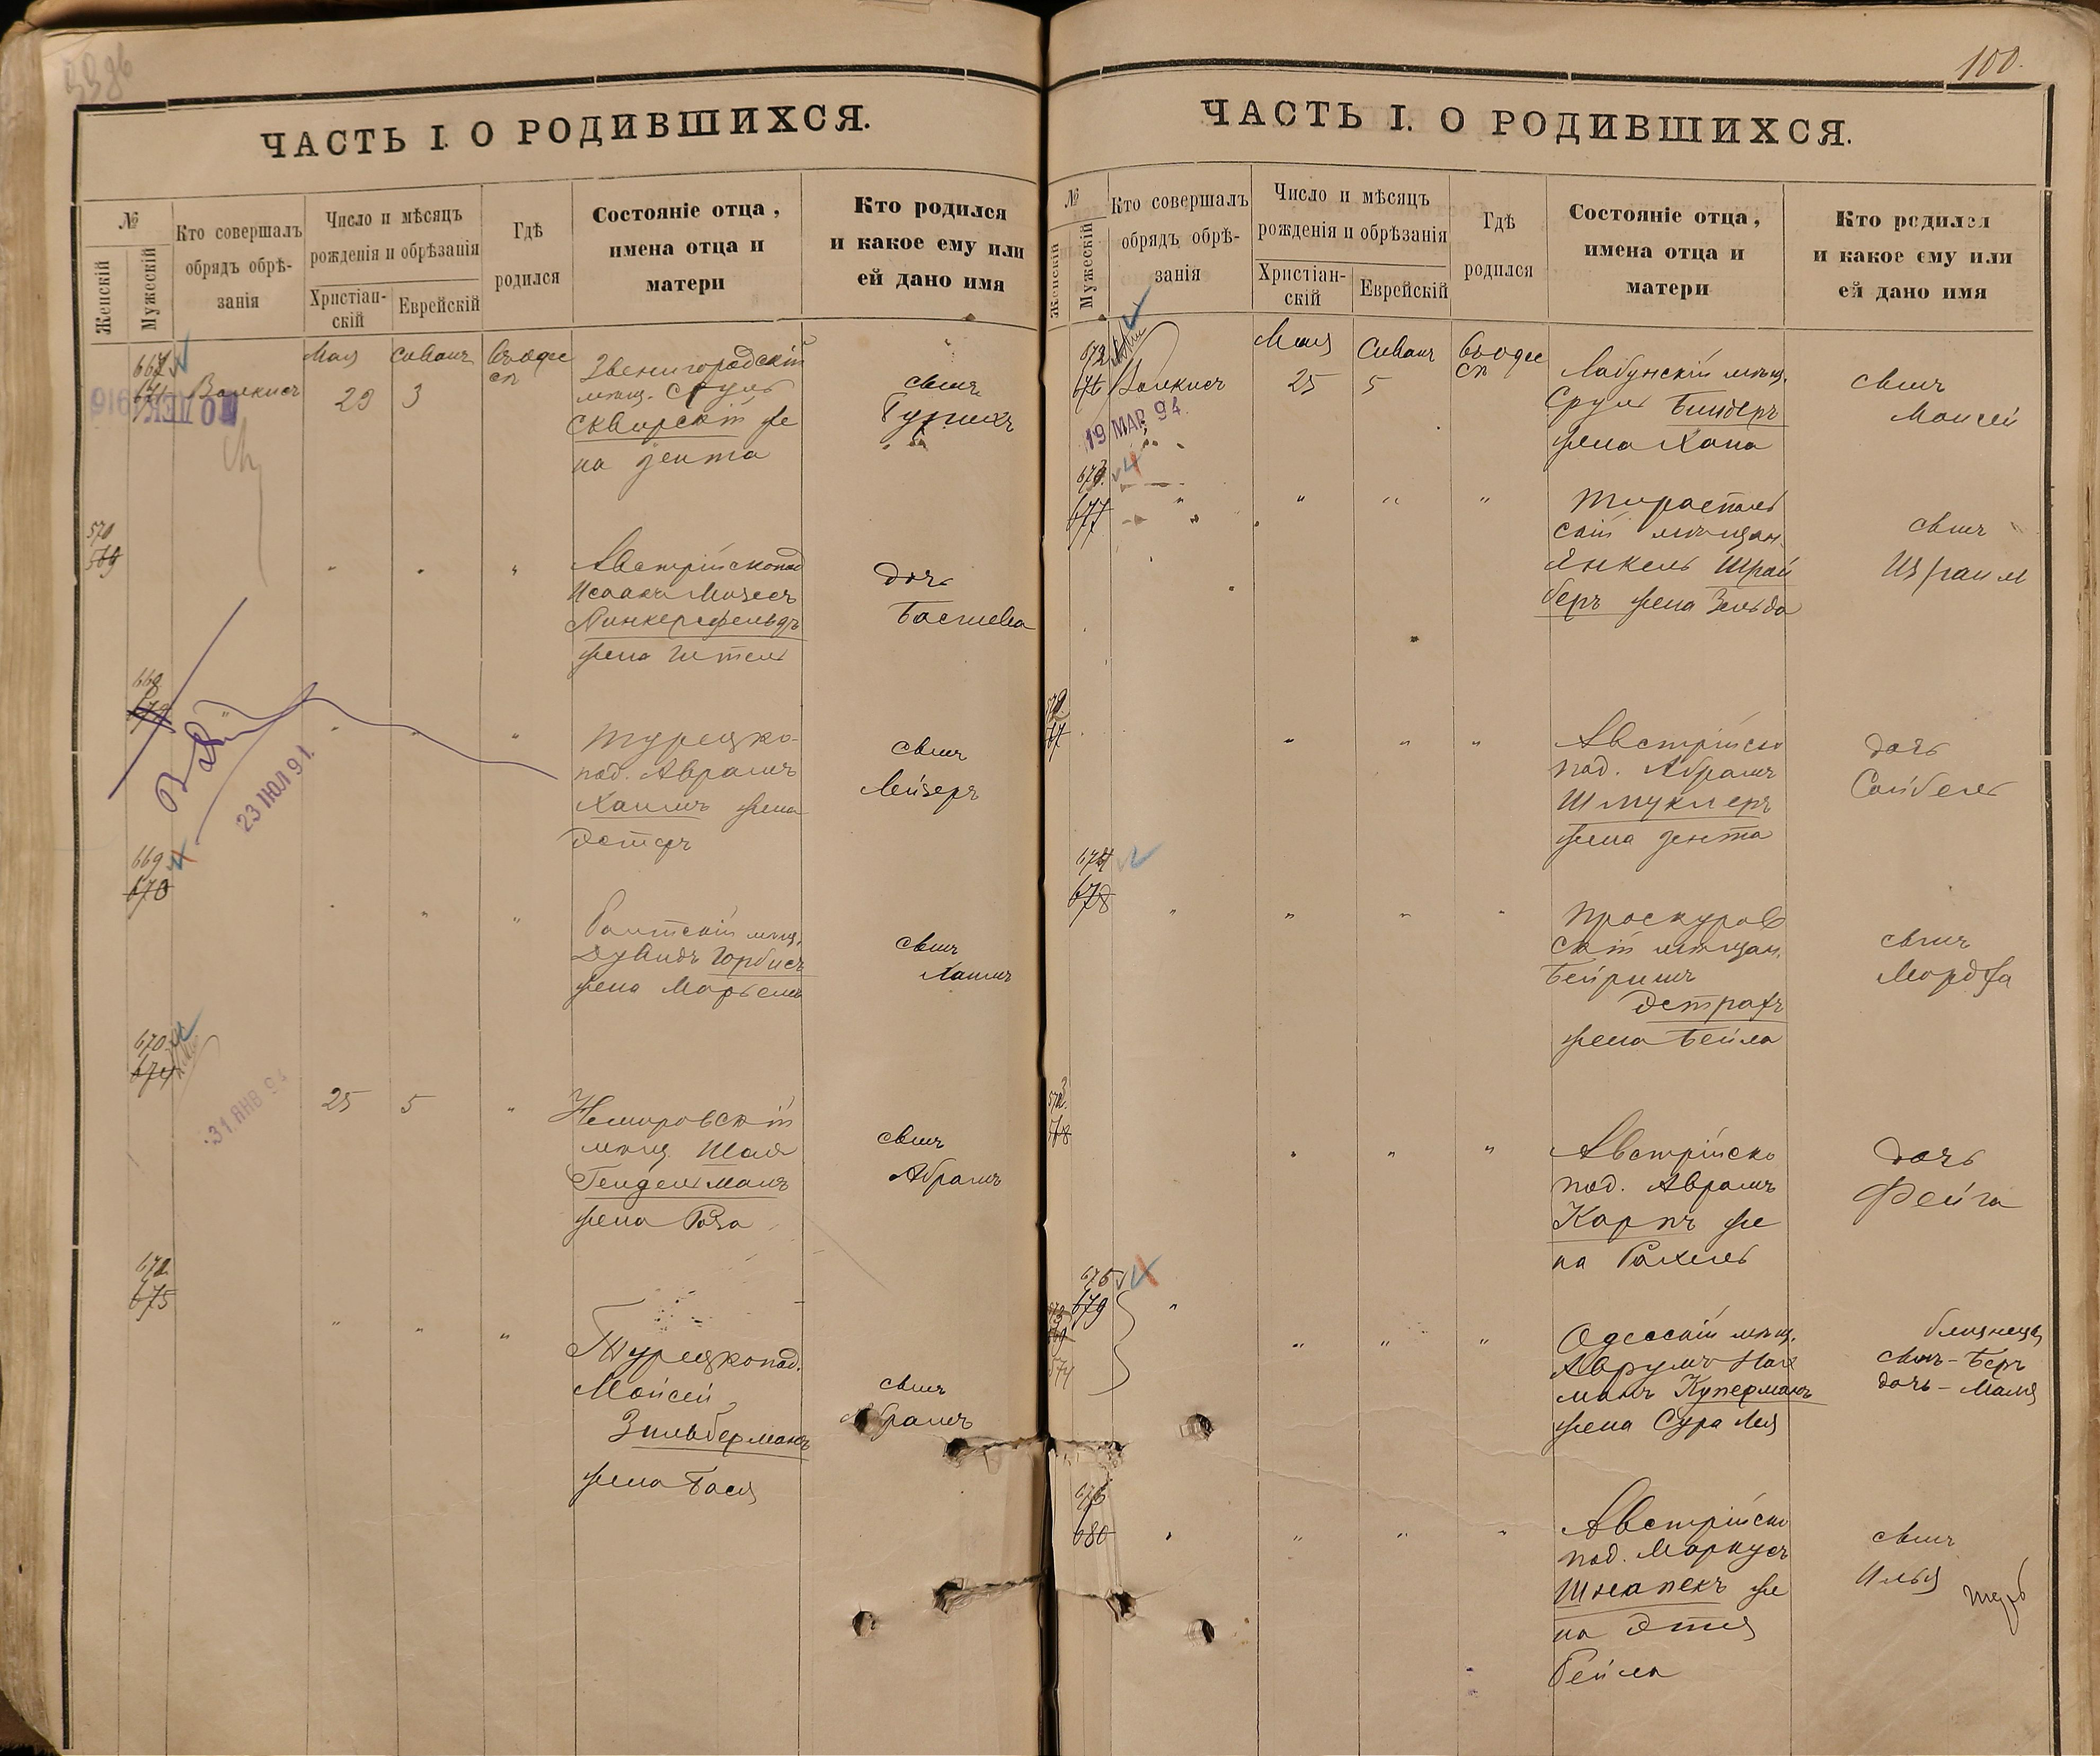 100.
ЧАСТЬ I. О РОДИВШИХСЯ.
№
Женскій
Мужескій
Кто совершалъ
обрядъ обрѣ-
занія
Число и мѣсяцъ
рожденія и обрѣзанія
Христіан-
скій
Еврейскій
Гдѣ
родился
Состояніе отца,
имена отца и
матери
Кто родился
и какое ему или
ей дано имя
667
Мая Сиванъ въ Одес
сѣ
Волкисъ
23 3
Звенигородскій
мѣщ. Сруль
Сквирскій же
на Зента
сынъ
570
569
" " "
Австрійскопод
Исаакъ Мозесъ
жена Этель
дочь
Басшева
668
" " "
Турецко-
под. Аврамъ
Хаимъ жена
Эстеръ
сынъ
Лейзеръ
23 ІЮЛ 91
669
670
" " "
мѣщ.
Дувидъ
жена Марьемъ
сынъ
Хаимъ
670
674
31 ЯНВ 9
25 5 "
Немировскій
мѣщ. Шая
Гендельманъ
жена Роза
сынъ
Абрамъ
675
" " "
Турецкопод.
Мойсей
Зильберманъ
жена Бася
сынъ
Абрамъ
ЧАСТЬ I. О РОДИВШИХСЯ.
№
Женскій
Мужескій
Кто совершалъ
обрядъ обрѣ-
занія
Число и мѣсяцъ
рожденія и обрѣзанія
Христіан-
скій
Еврейскій
Гдѣ
родился
Состояніе отца,
имена отца и
матери
Кто родился
и какое ему или
ей дано имя
672
Мая Сиванъ въ Одес
сѣ
Волкисъ
25 5
Лабунскій мѣщ.
Сруль Биндеръ
жена Хана
сынъ
Моисей
19 МАР. 94
673
677
" " " "
Тирасполь
скій мѣщан.
Янкель Шрай
беръ жена Зельда
сынъ
Израил
" " "
Австрійско
под. Абрамъ
Шмуклеръ
жена Зента
дочь
Сойбель
674
678
" " " "
Проскуров
скій мѣщан.
Бейришъ
жена Бейла
сынъ
Мордха
" " "
Австрійско
под. Аврамъ
Карпъ же
на Рахель
дочь
Фейга
675
679
574
" " " "
Одесскій мѣщ.
Аврумъ Нах
манъ Куперманъ
жена Сура Лея
близнецы
сынъ - Беръ
дочь - Маля
676
680
" " " "
Австрійско
под. Маркусъ
Шнапекъ же
на Этя
Бейла
сынъ
Илья